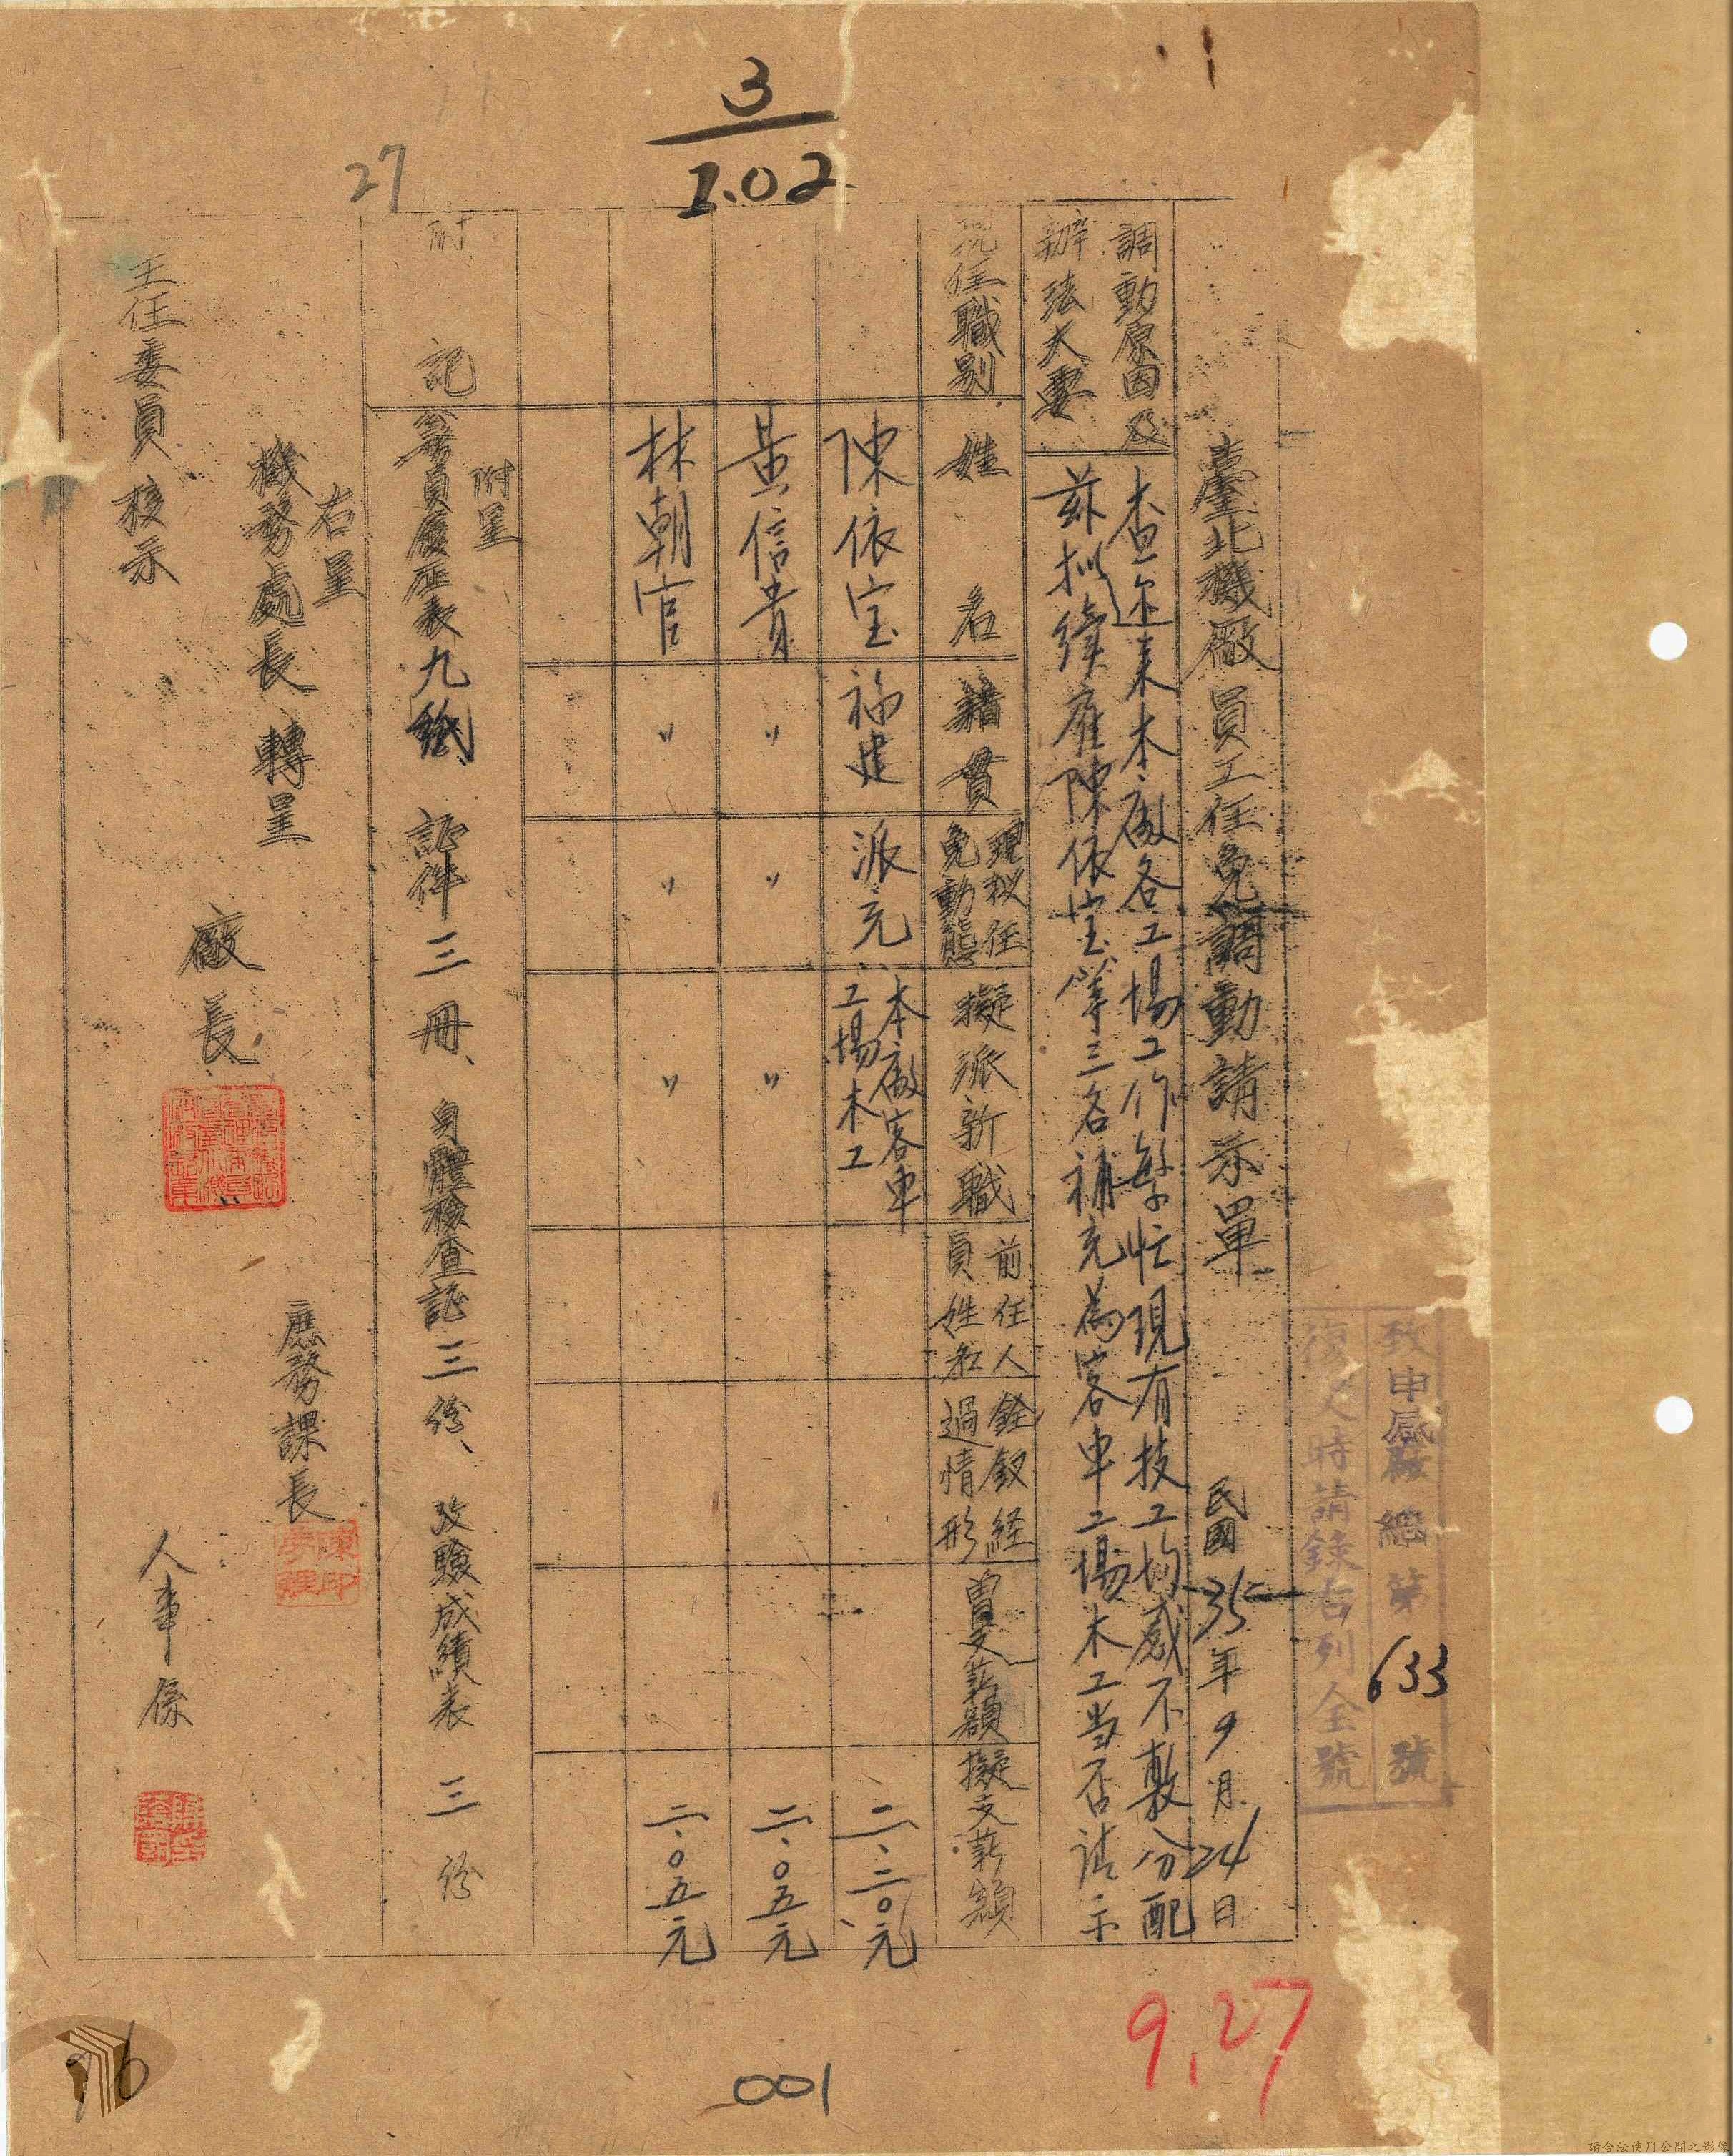 3
1.02
27
致申感廠總第633號
復文時請錄右列全號
臺北機廠員工任免調動請示單
民國35年9月24日
調動原因及
辦法大要
查邇來本廠各工場工作繁忙現有技工均感不敷分配
茲擬續雇陳依宝等三名補充為客車工場木工当否請示
現任職別
姓名
籍貫
現擬任
免動態
擬派新職
前任人
員姓名
銓敘経
過情形
曾支薪額
擬支薪額
陳依宝
福建
派充
本廠客車
工場木工
二、二〇元
黃信青
〃
〃
〃
二、〇五元
林朝官
〃
〃
〃
二、〇五元
附記
附呈
公務員履歷表九紙、証件三冊、身體檢查証三份、攷驗成績表三份
右呈
機務處長轉呈
主任委員核示
廠長
庶務課長
人事係
9,27
001
請合法使用公開之影像